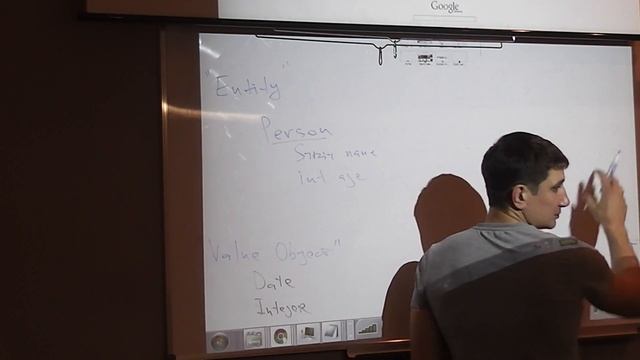 Google
"Entity"
Person
String name
int age
Value Object"
Date
Integer